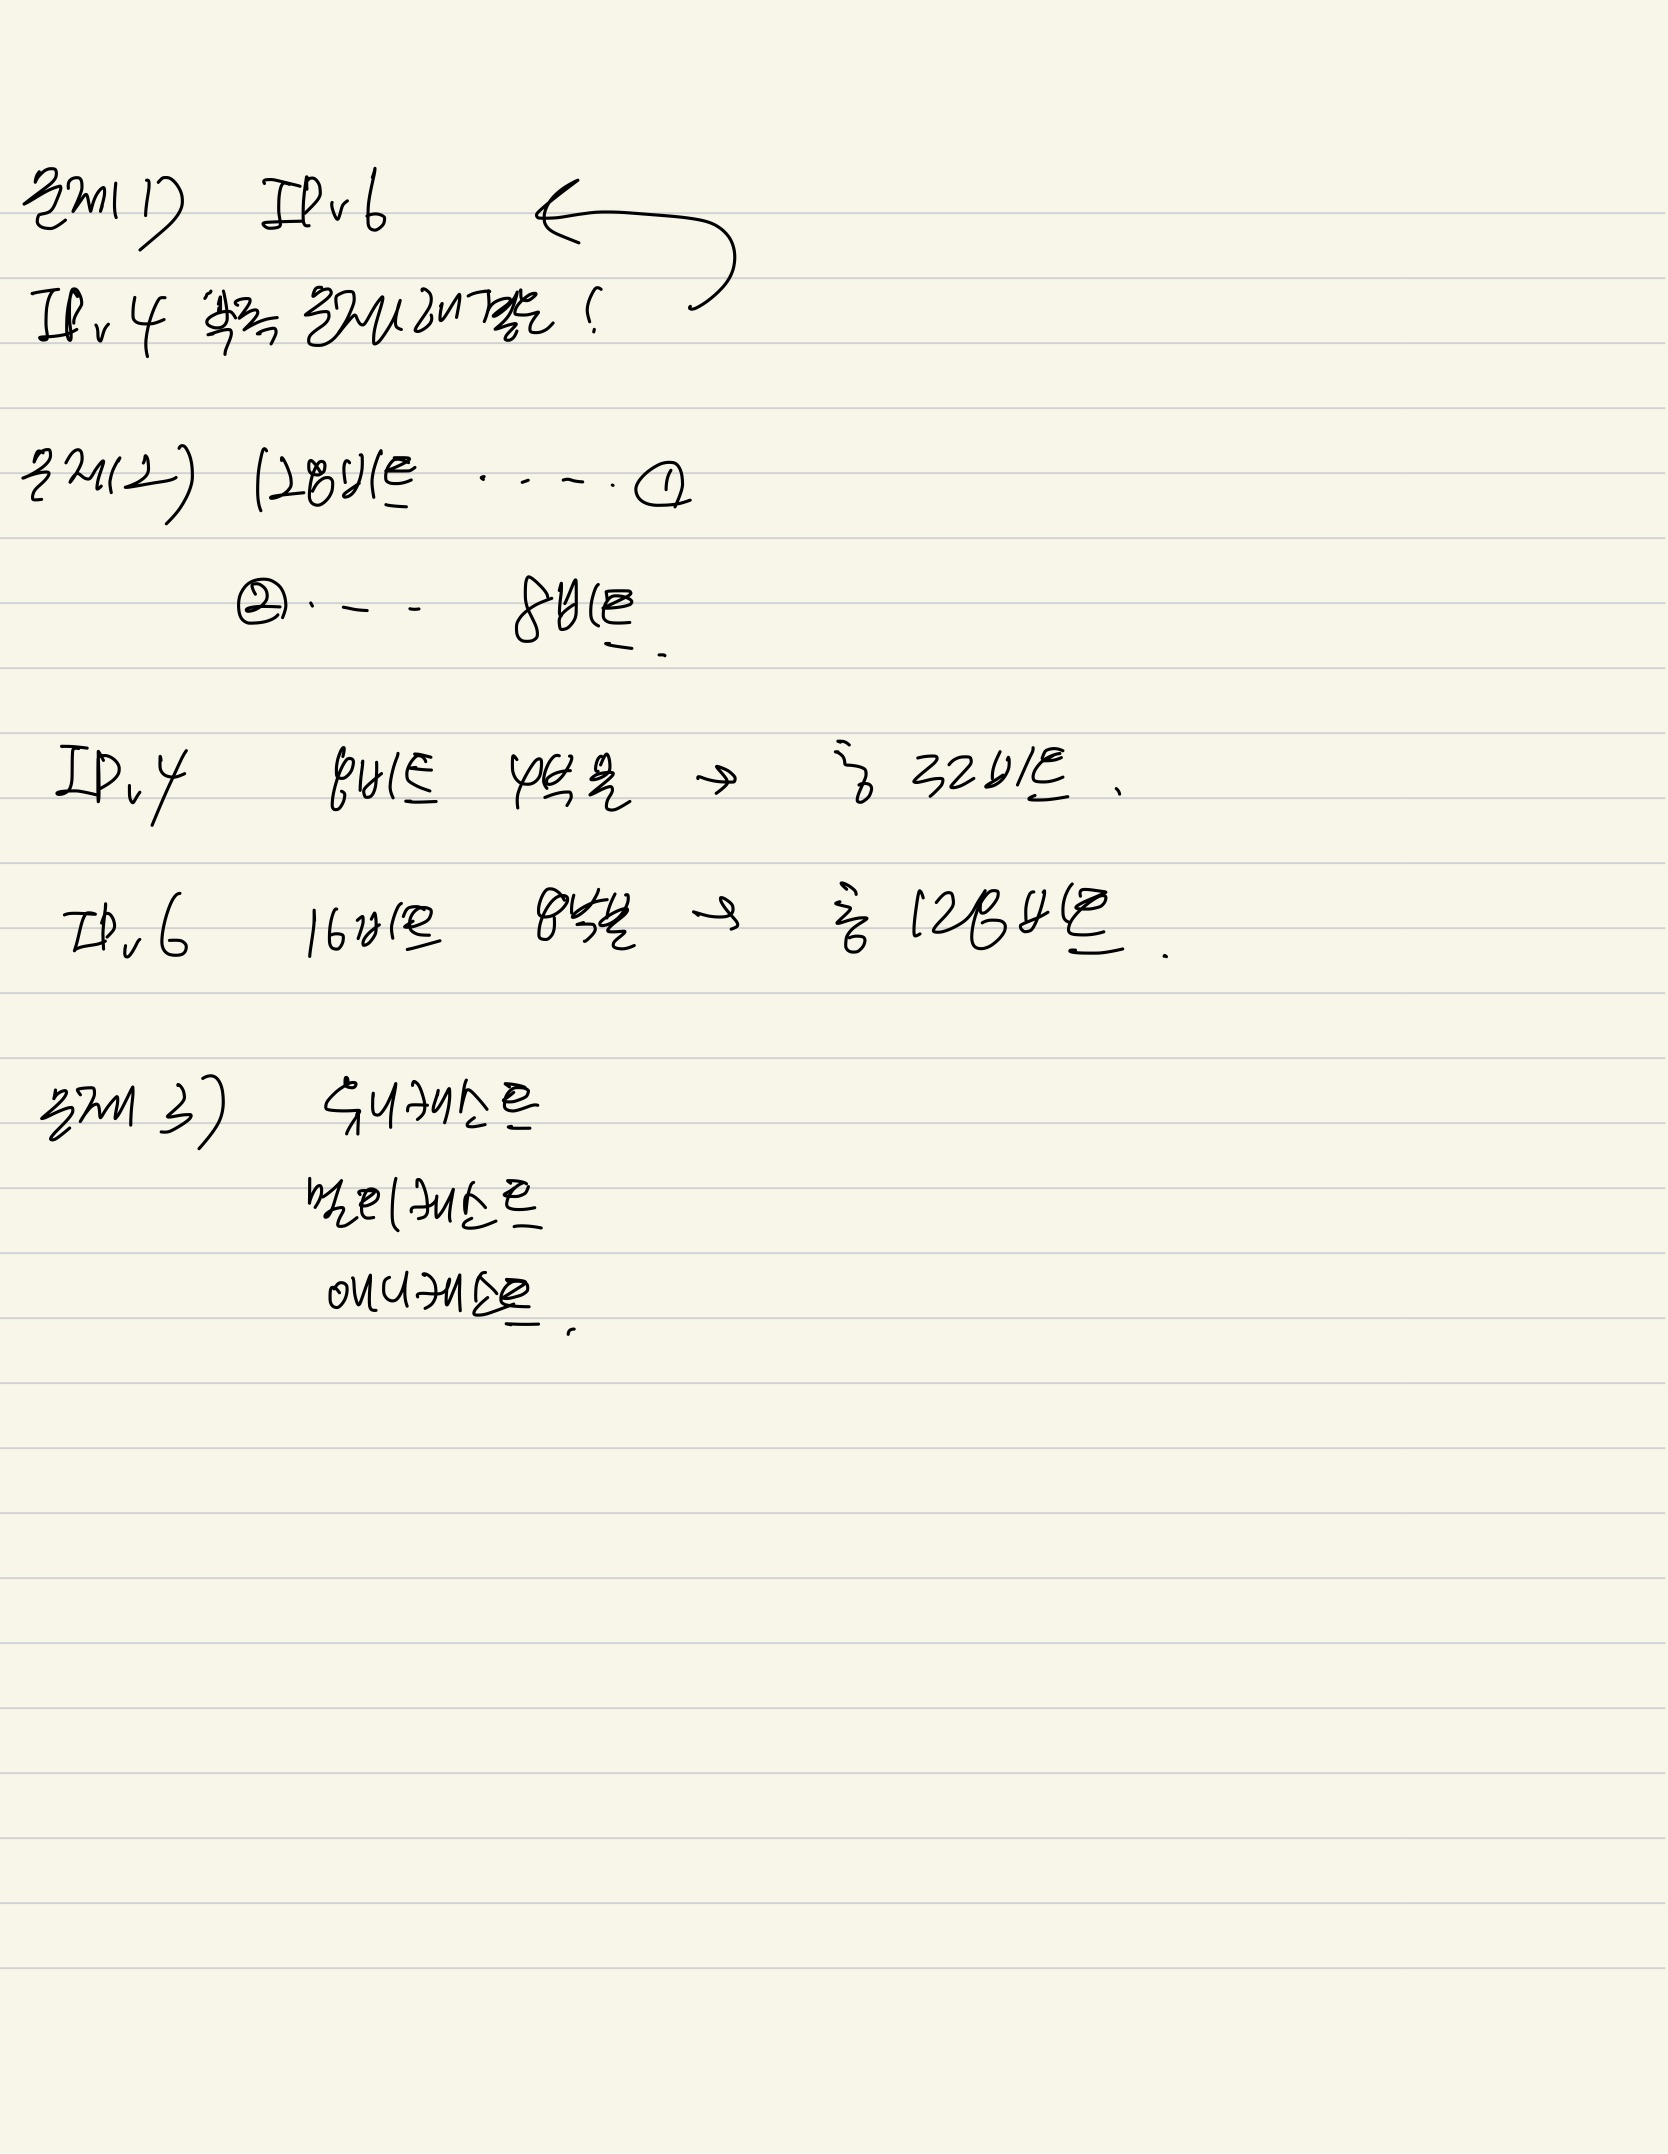 문제 1) IPv6
IPv4 부족 문제 해결은 !
문제 2) 128비트 ····· ①
② ···· 8비트.
IPv4 8비트 4부분 → 총 32비트.
IPv6 16비트 8부분 → 총 128비트.
문제 3) 유니캐스트
멀티캐스트
애니캐스트.